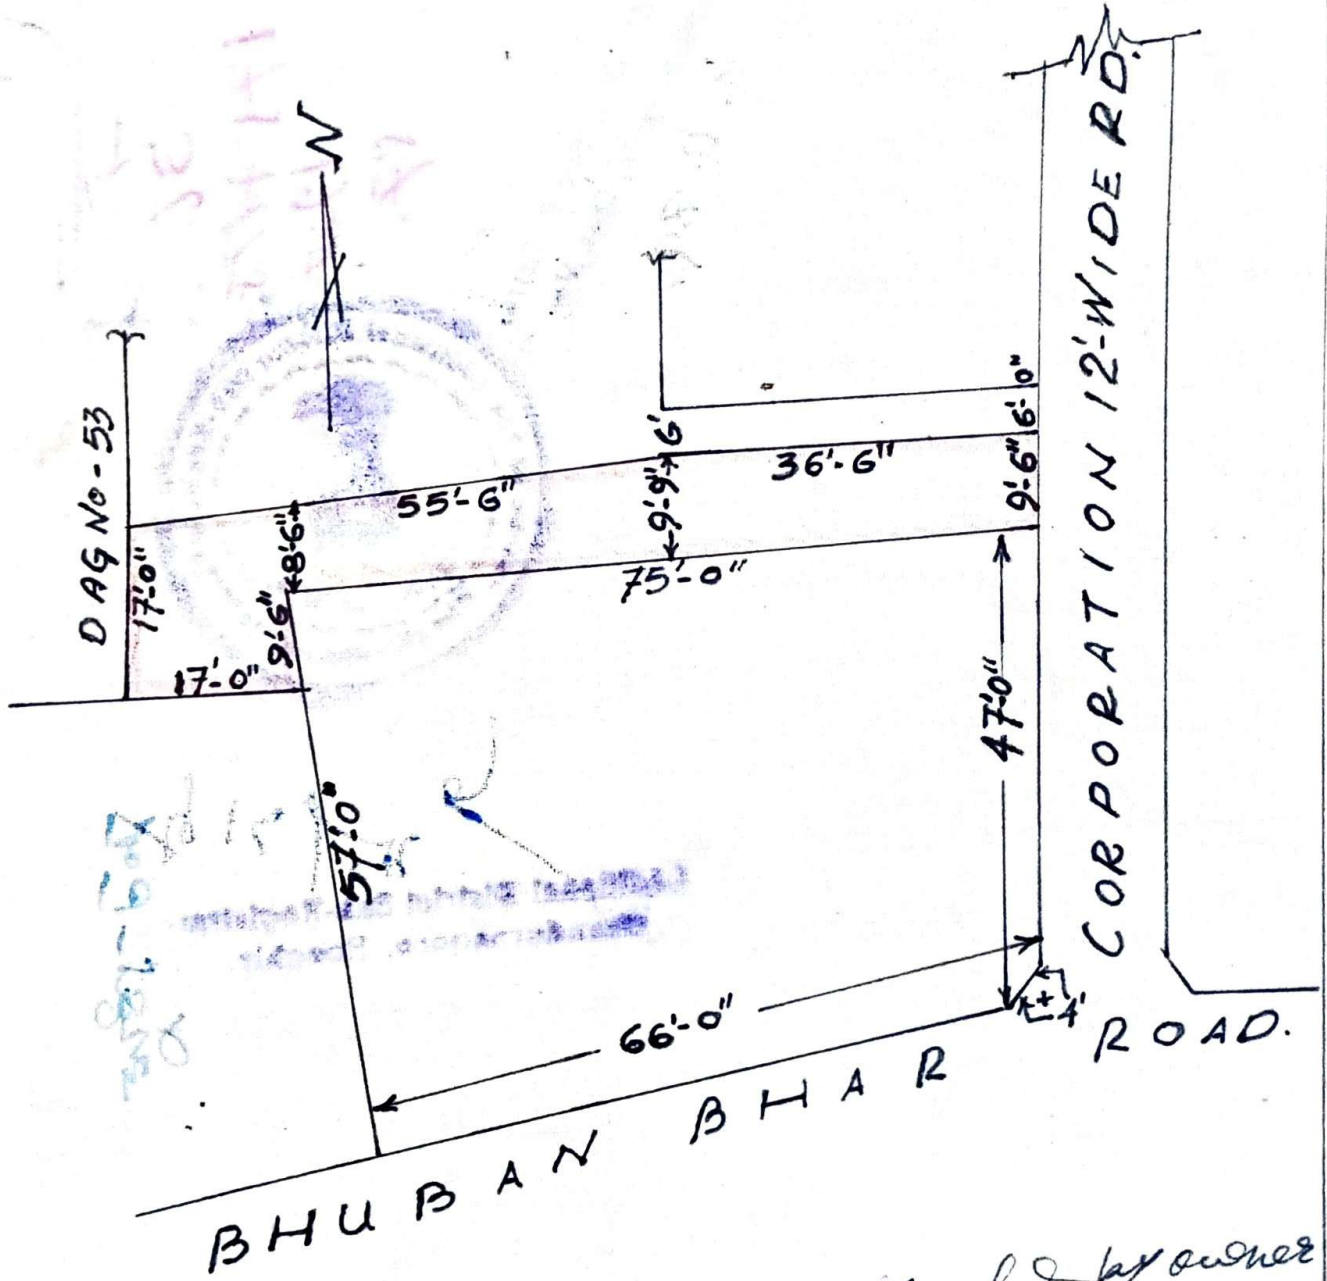 N
CORPORATION 12'-WIDE RD.
DAG No-53
6'-0"
6'
36'-6"
9'-6"
55'-6"
9'-9"
8'-6"
17'-0"
75'-0"
9'-6"
17'-0"
47'-0"
57'-0"
66'-0"
4'
4'
BHUBAN BHAR ROAD.
by owner